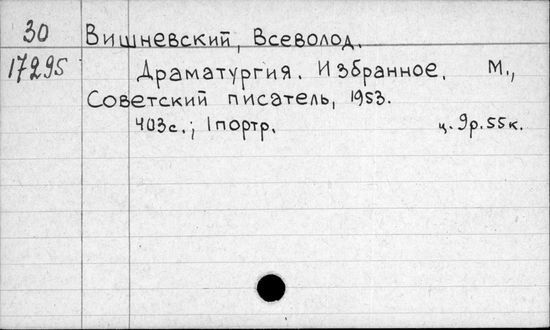 30 Вишневский, Всеволод.
17295 Драматургия. Избранное. М.,
Советский писатель, 1953.
403с.; 1портр. ц. 9р. 55к.